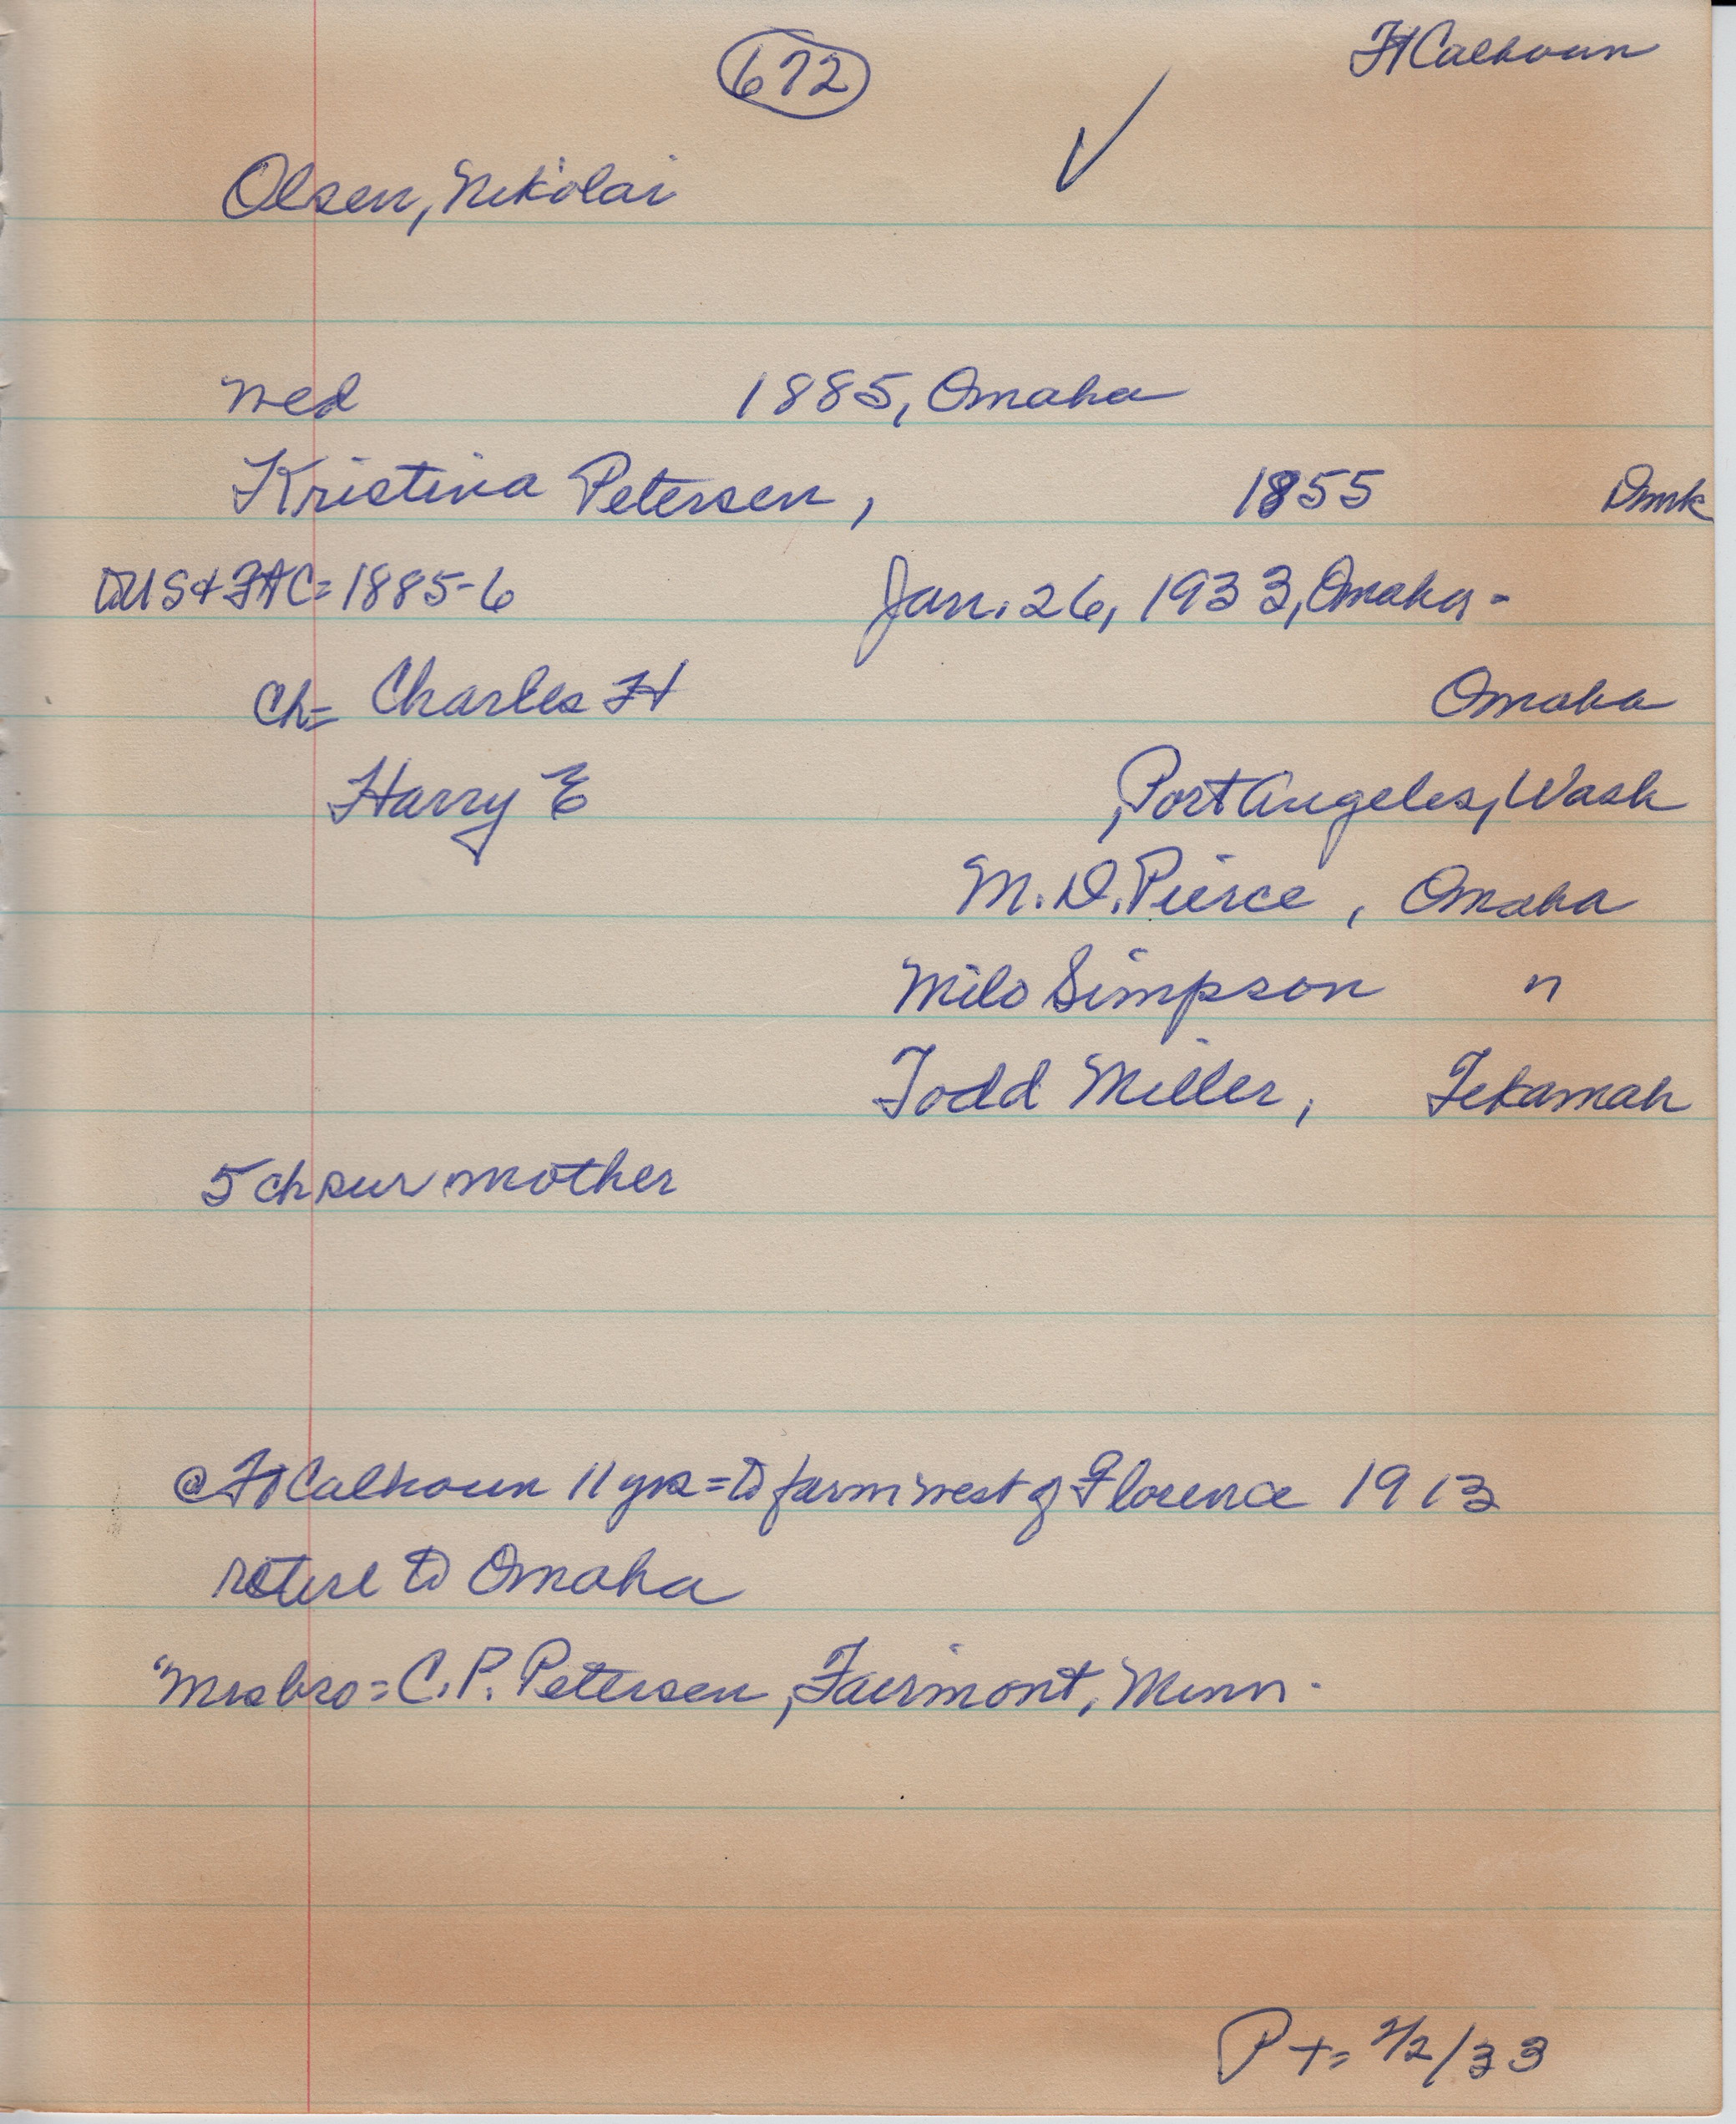 672
Ft Calhoun
Olsen, Nikolai
med 1885, Omaha
Kristina Petersen, 1855 Dmk
to US & FtC = 1885-6 Jan. 26, 1933, Omaha -
ch= Charles H Omaha
Harry E , Port Angeles, Wash
M. D. Pierce, Omaha
Milo Simpson "
Todd Miller, Tekamah
5 ch sur mother
@ Ft Calhoun 11 yrs = to farm west of Florence 1913
retire to Omaha
Mrs bro = C. P. Petersen, Fairmont, Minn.
P += 2/2/33